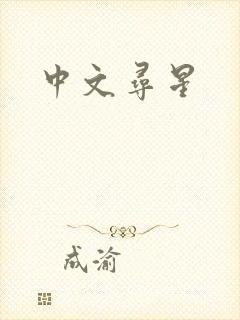 中文尋星
成渝